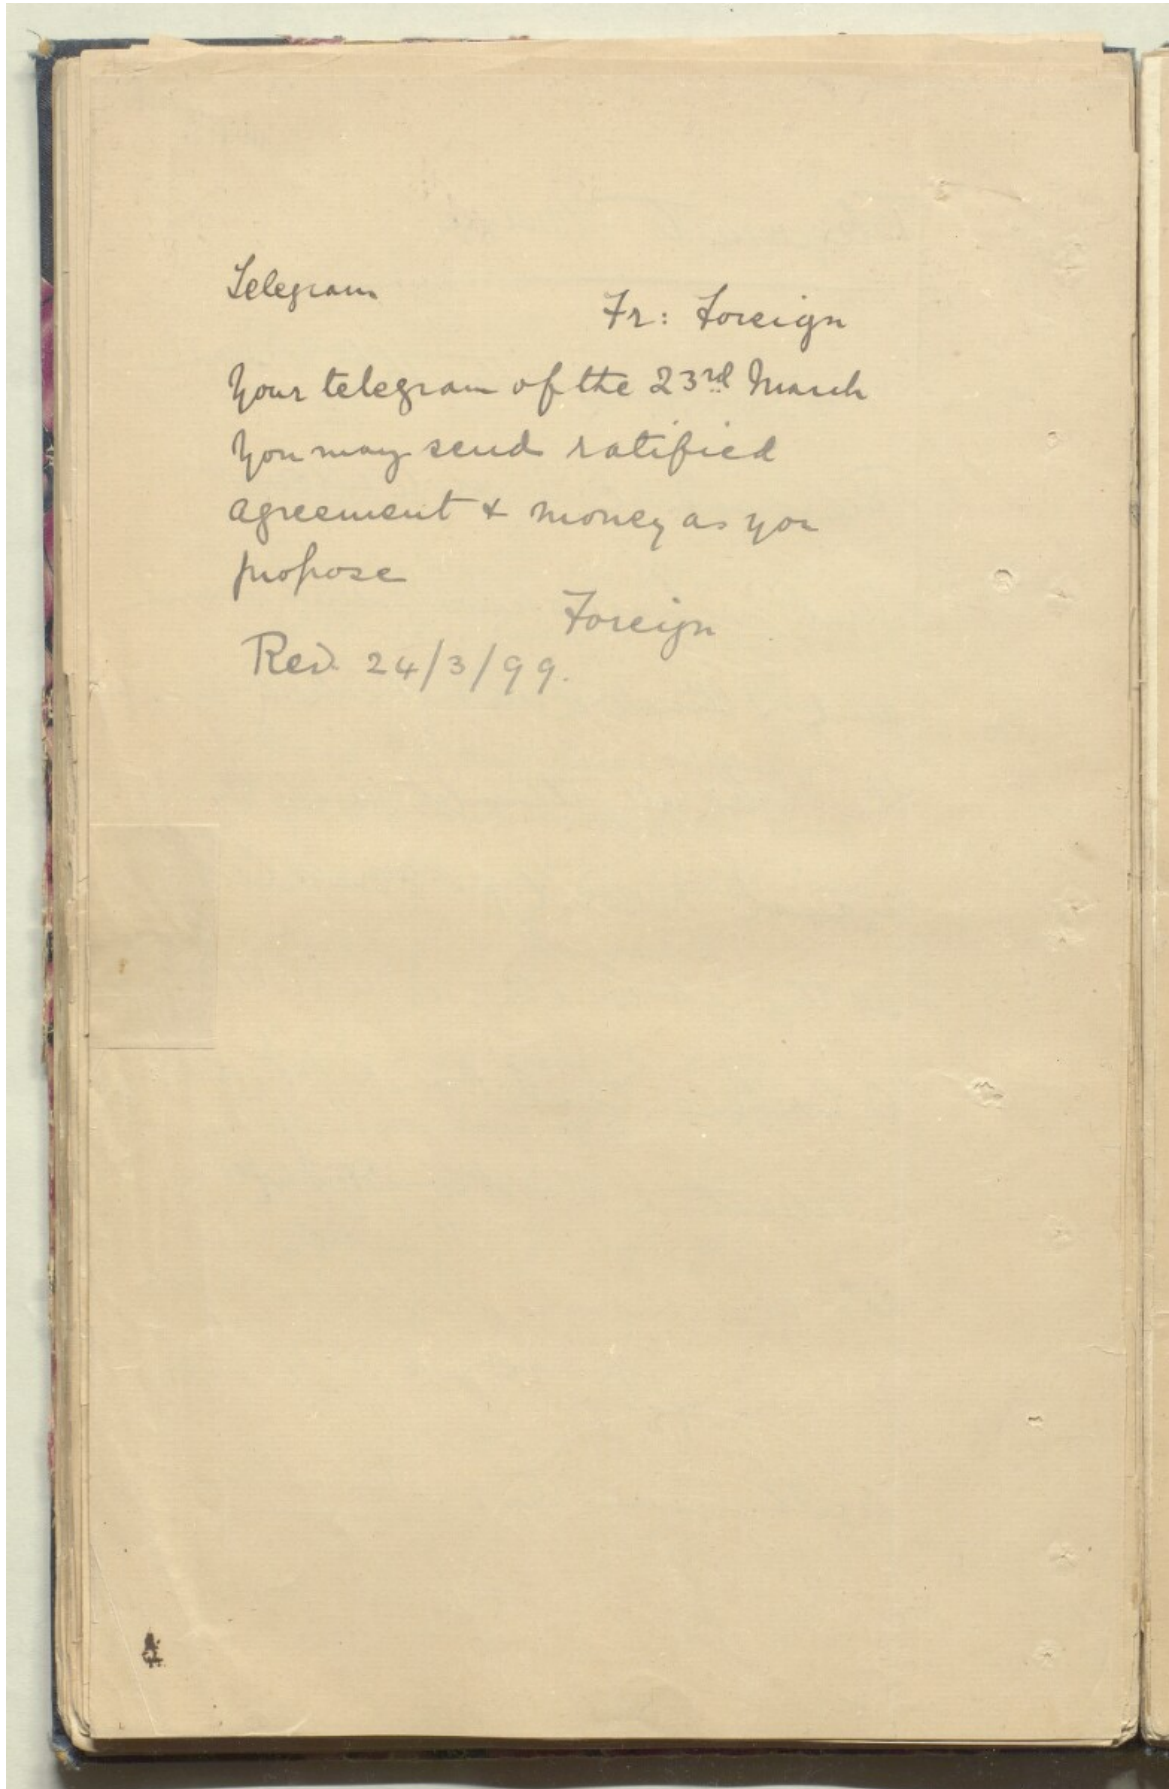 Telegram
Fr: Foreign
Your telegram of the 23rd March
You may send ratified
agreement & money as you
propose
Foreign
Recd. 24/3/99.